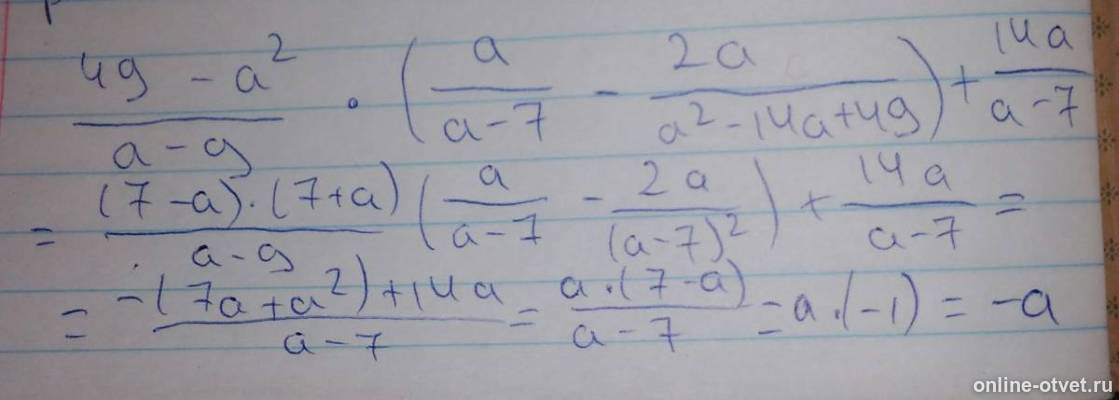 (49 - a²)/(a - 9) · (a/(a - 7) - 2a/(a² - 14a + 49)) + 14a/(a - 7)
= ((7 - a) · (7 + a))/(a - 9) (a/(a - 7) - 2a/(a - 7)²) + 14a/(a - 7) =
= (-(7a + a²) + 14a)/(a - 7) = (a · (7 - a))/(a - 7) = a · (-1) = -a
online-otvet.ru